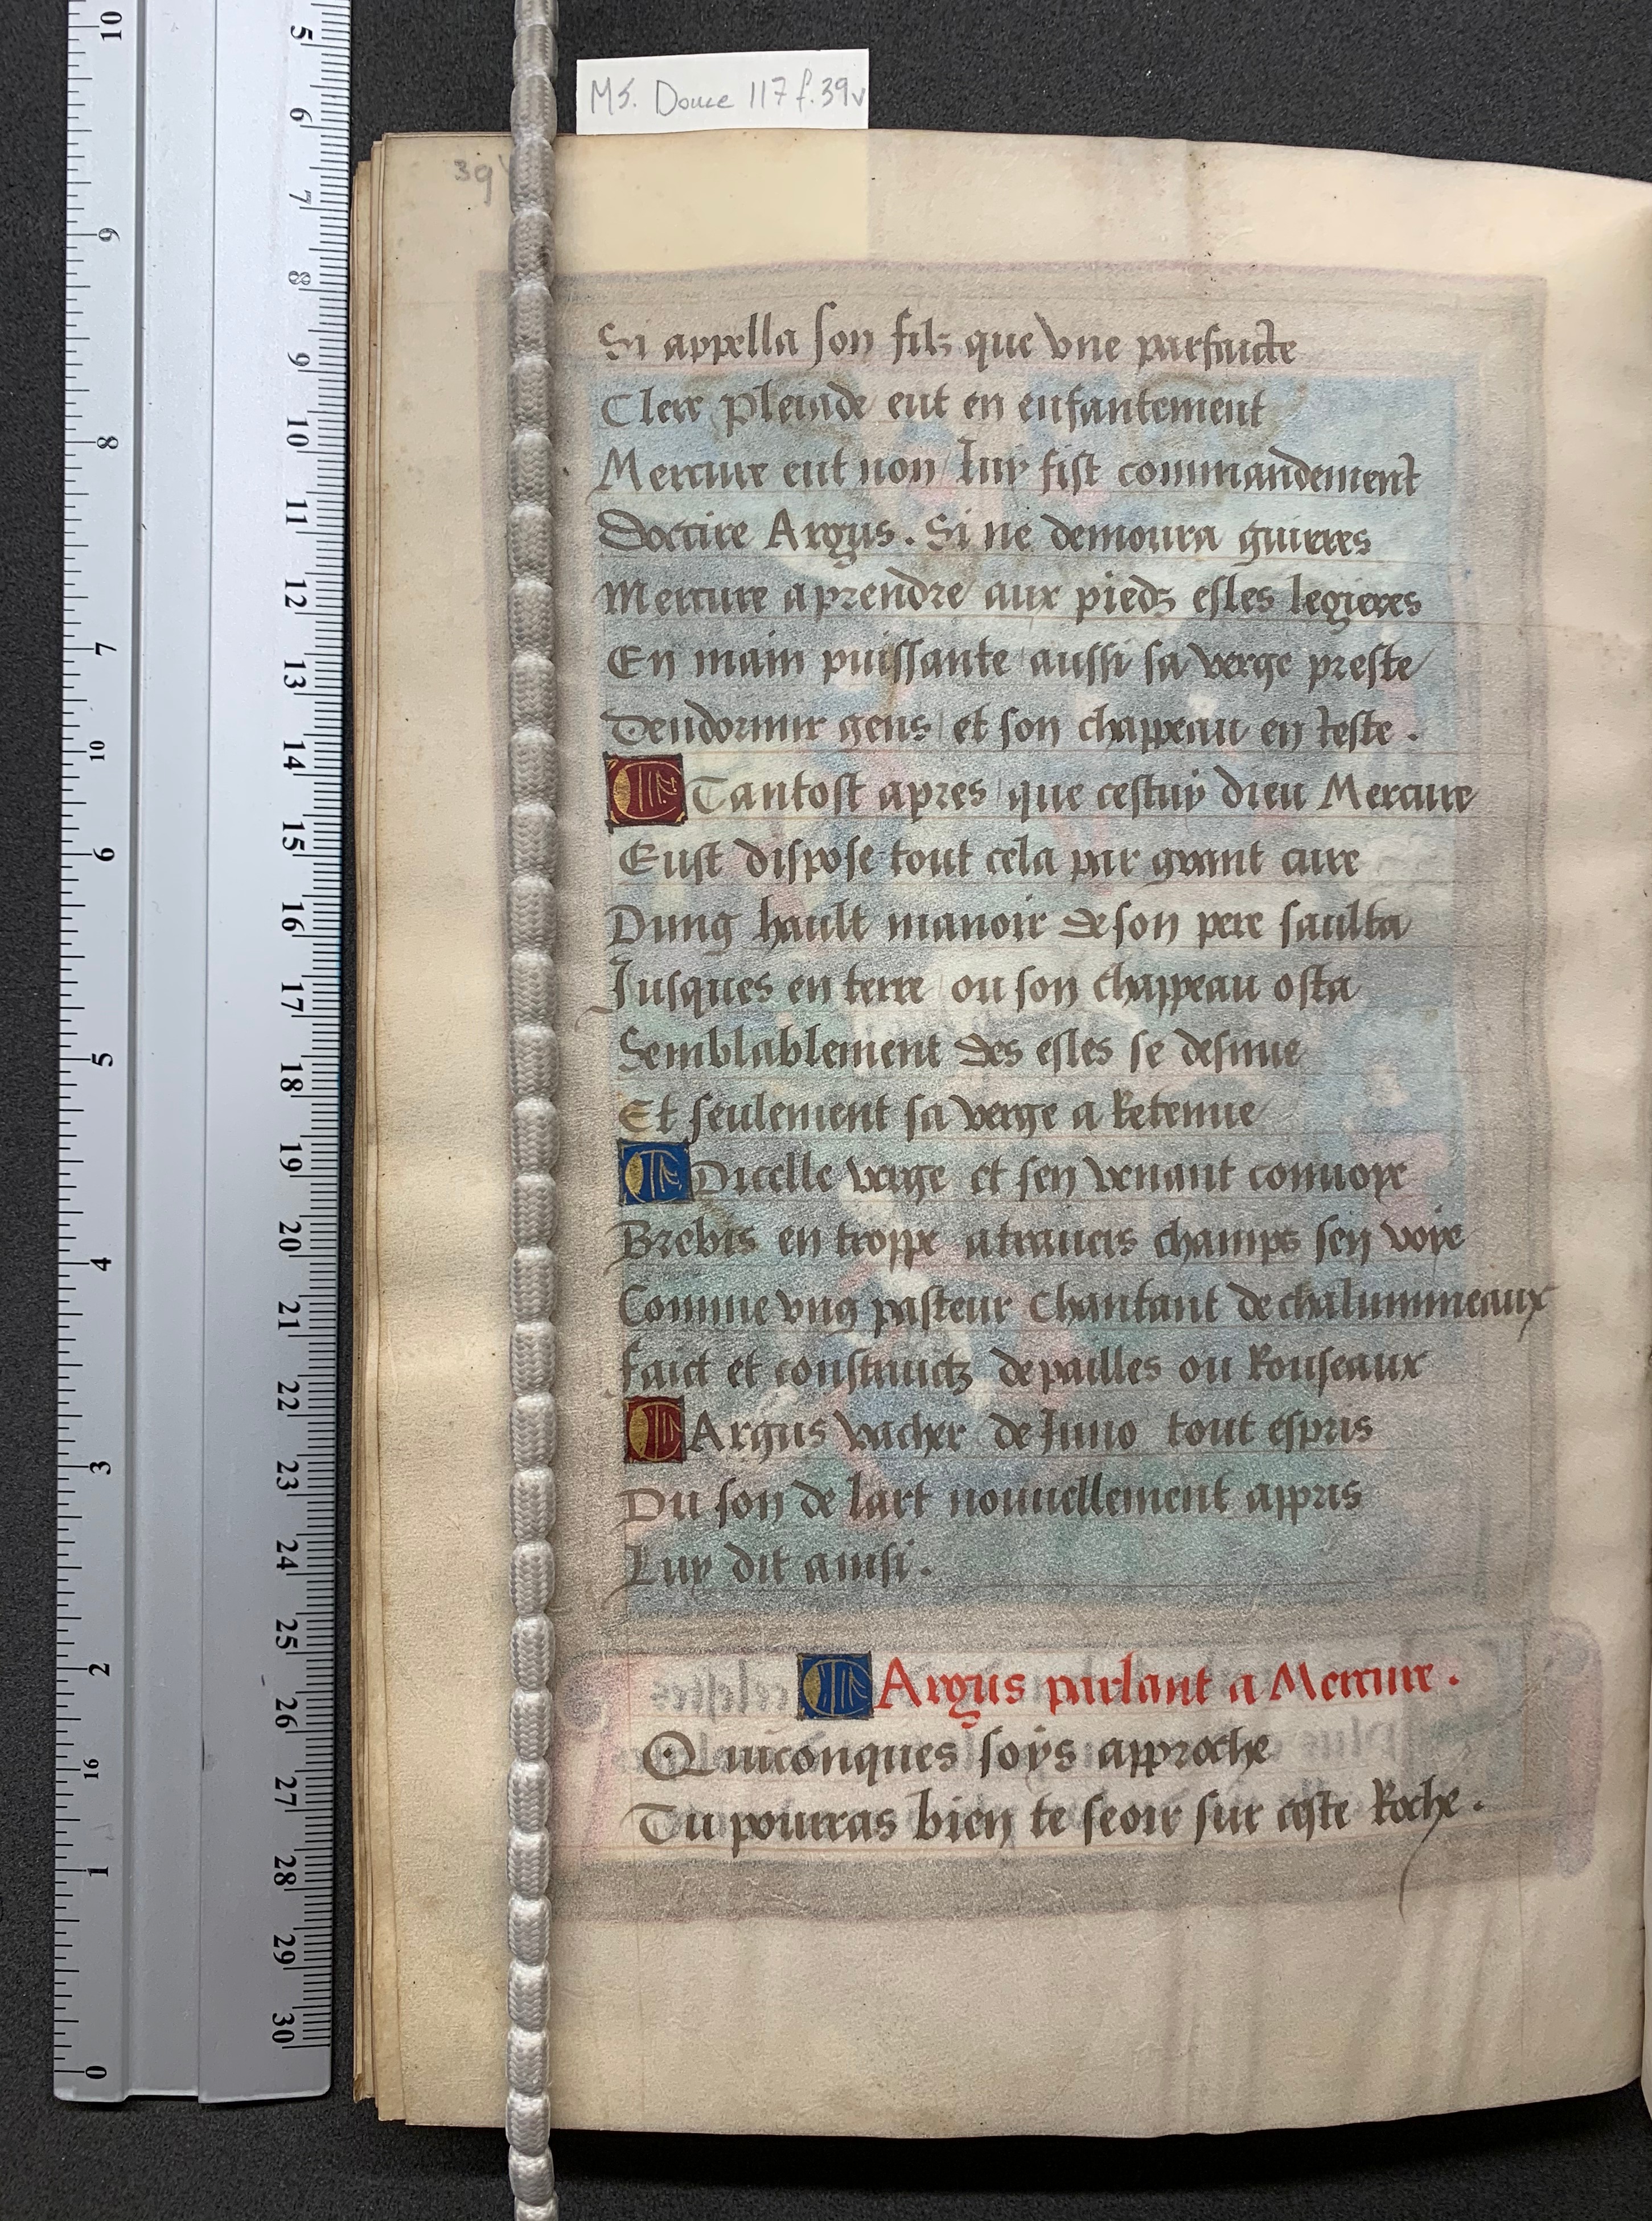 MS. Douce 117 f. 39v
39v
Si appella son filz que vne parfaicte
Clere pleiade eut en enfantement
Mercure eut non luy fist commandement
Doccire Argus. Si ne demoura guieres
Mercure a prendre aux piedz esles legieres
En main puissante aussi sa verge preste
Dendormir gens et son chappeau en teste.
Tantost apres que cestuy dieu Mercure
Eust dispose tout cela par grant cure
Dung hault manoir de son pere saulta
Jusques en terre ou son chappeau osta
Semblablement des esles se desnue
Et seulement sa verge a Retenue
Dicelle verge et sen venant conuoye
Brebis en troppe atrauers champs sen voye
Comme vng pasteur Chantant de chalummeaux
faict et construictz de pailles ou Rouseaux
Argus vacher de Iuno tout espris
Du son de lart nouuellement appris
Luy dit ainsi.
Argus parlant a Mercure.
Quiconques soys approche
Tu pourras bien te seoir sur ceste Roche.